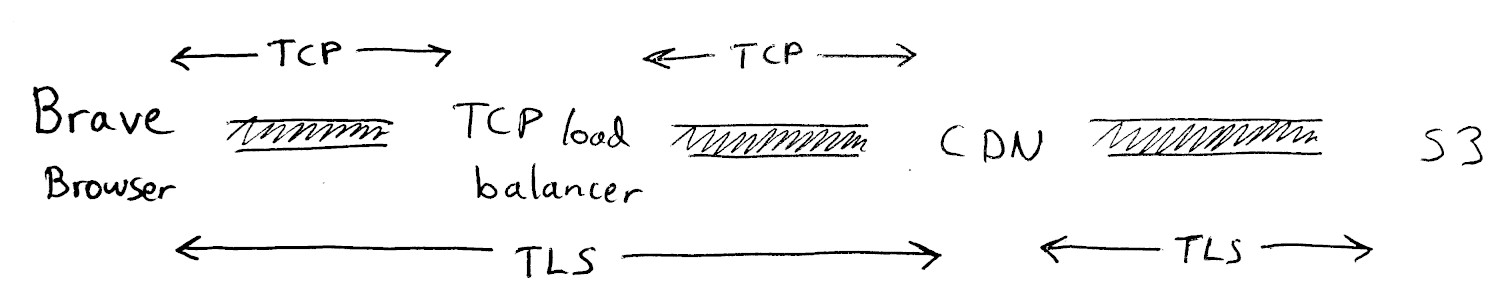 TCP
TCP
Brave
Browser
TCP load
balancer
CDN
S3
TLS
TLS